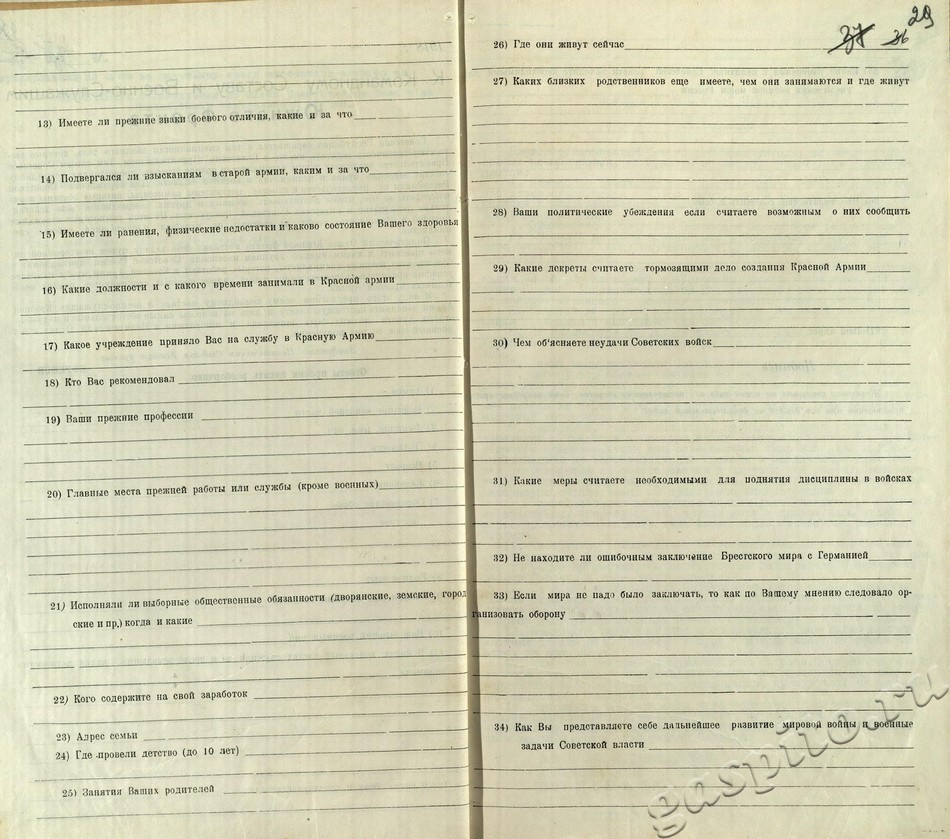 13) Имеете ли прежние знаки боевого отличия, какие и за что
14) Подвергался ли взысканиям в старой армии, каким и за что
15) Имеете ли ранения, физические недостатки и каково состояние Вашего здоровья
16) Какие должности и с какого времени занимали в Красной армии
17) Какое учреждение приняло Вас на службу в Красную Армию
18) Кто Вас рекомендовал
19) Ваши прежние профессии
20) Главные места прежней работы или службы (кроме военных)
21) Исполняли ли выборные общественные обязанности (дворянские, земские, город
ские и пр.) когда и какие
22) Кого содержите на свой заработок
23) Адрес семьи
24) Где провели детство (до 10 лет)
25) Занятия Ваших родителей
29
37 36
26) Где они живут сейчас
27) Каких близких родственников еще имеете, чем они занимаются и где живут
28) Ваши политические убеждения если считаете возможным о них сообщить
29) Какие декреты считаете тормозящими дело создания Красной Армии
30) Чем об'ясняете неудачи Советских войск
31) Какие меры считаете необходимыми для поднятия дисциплины в войсках
32) Не находите ли ошибочным заключение Брестского мира с Германией
33) Если мира не надо было заключать, то как по Вашему мнению следовало ор-
ганизовать оборону
34) Как Вы представляете себе дальнейшее развитие мировой войны и военные
задачи Советской власти
gaspito.ru